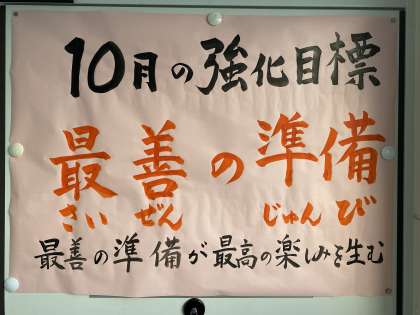 10月の強化目標
最善の準備
さいぜん じゅんび
最善の準備が最高の楽しみを生む